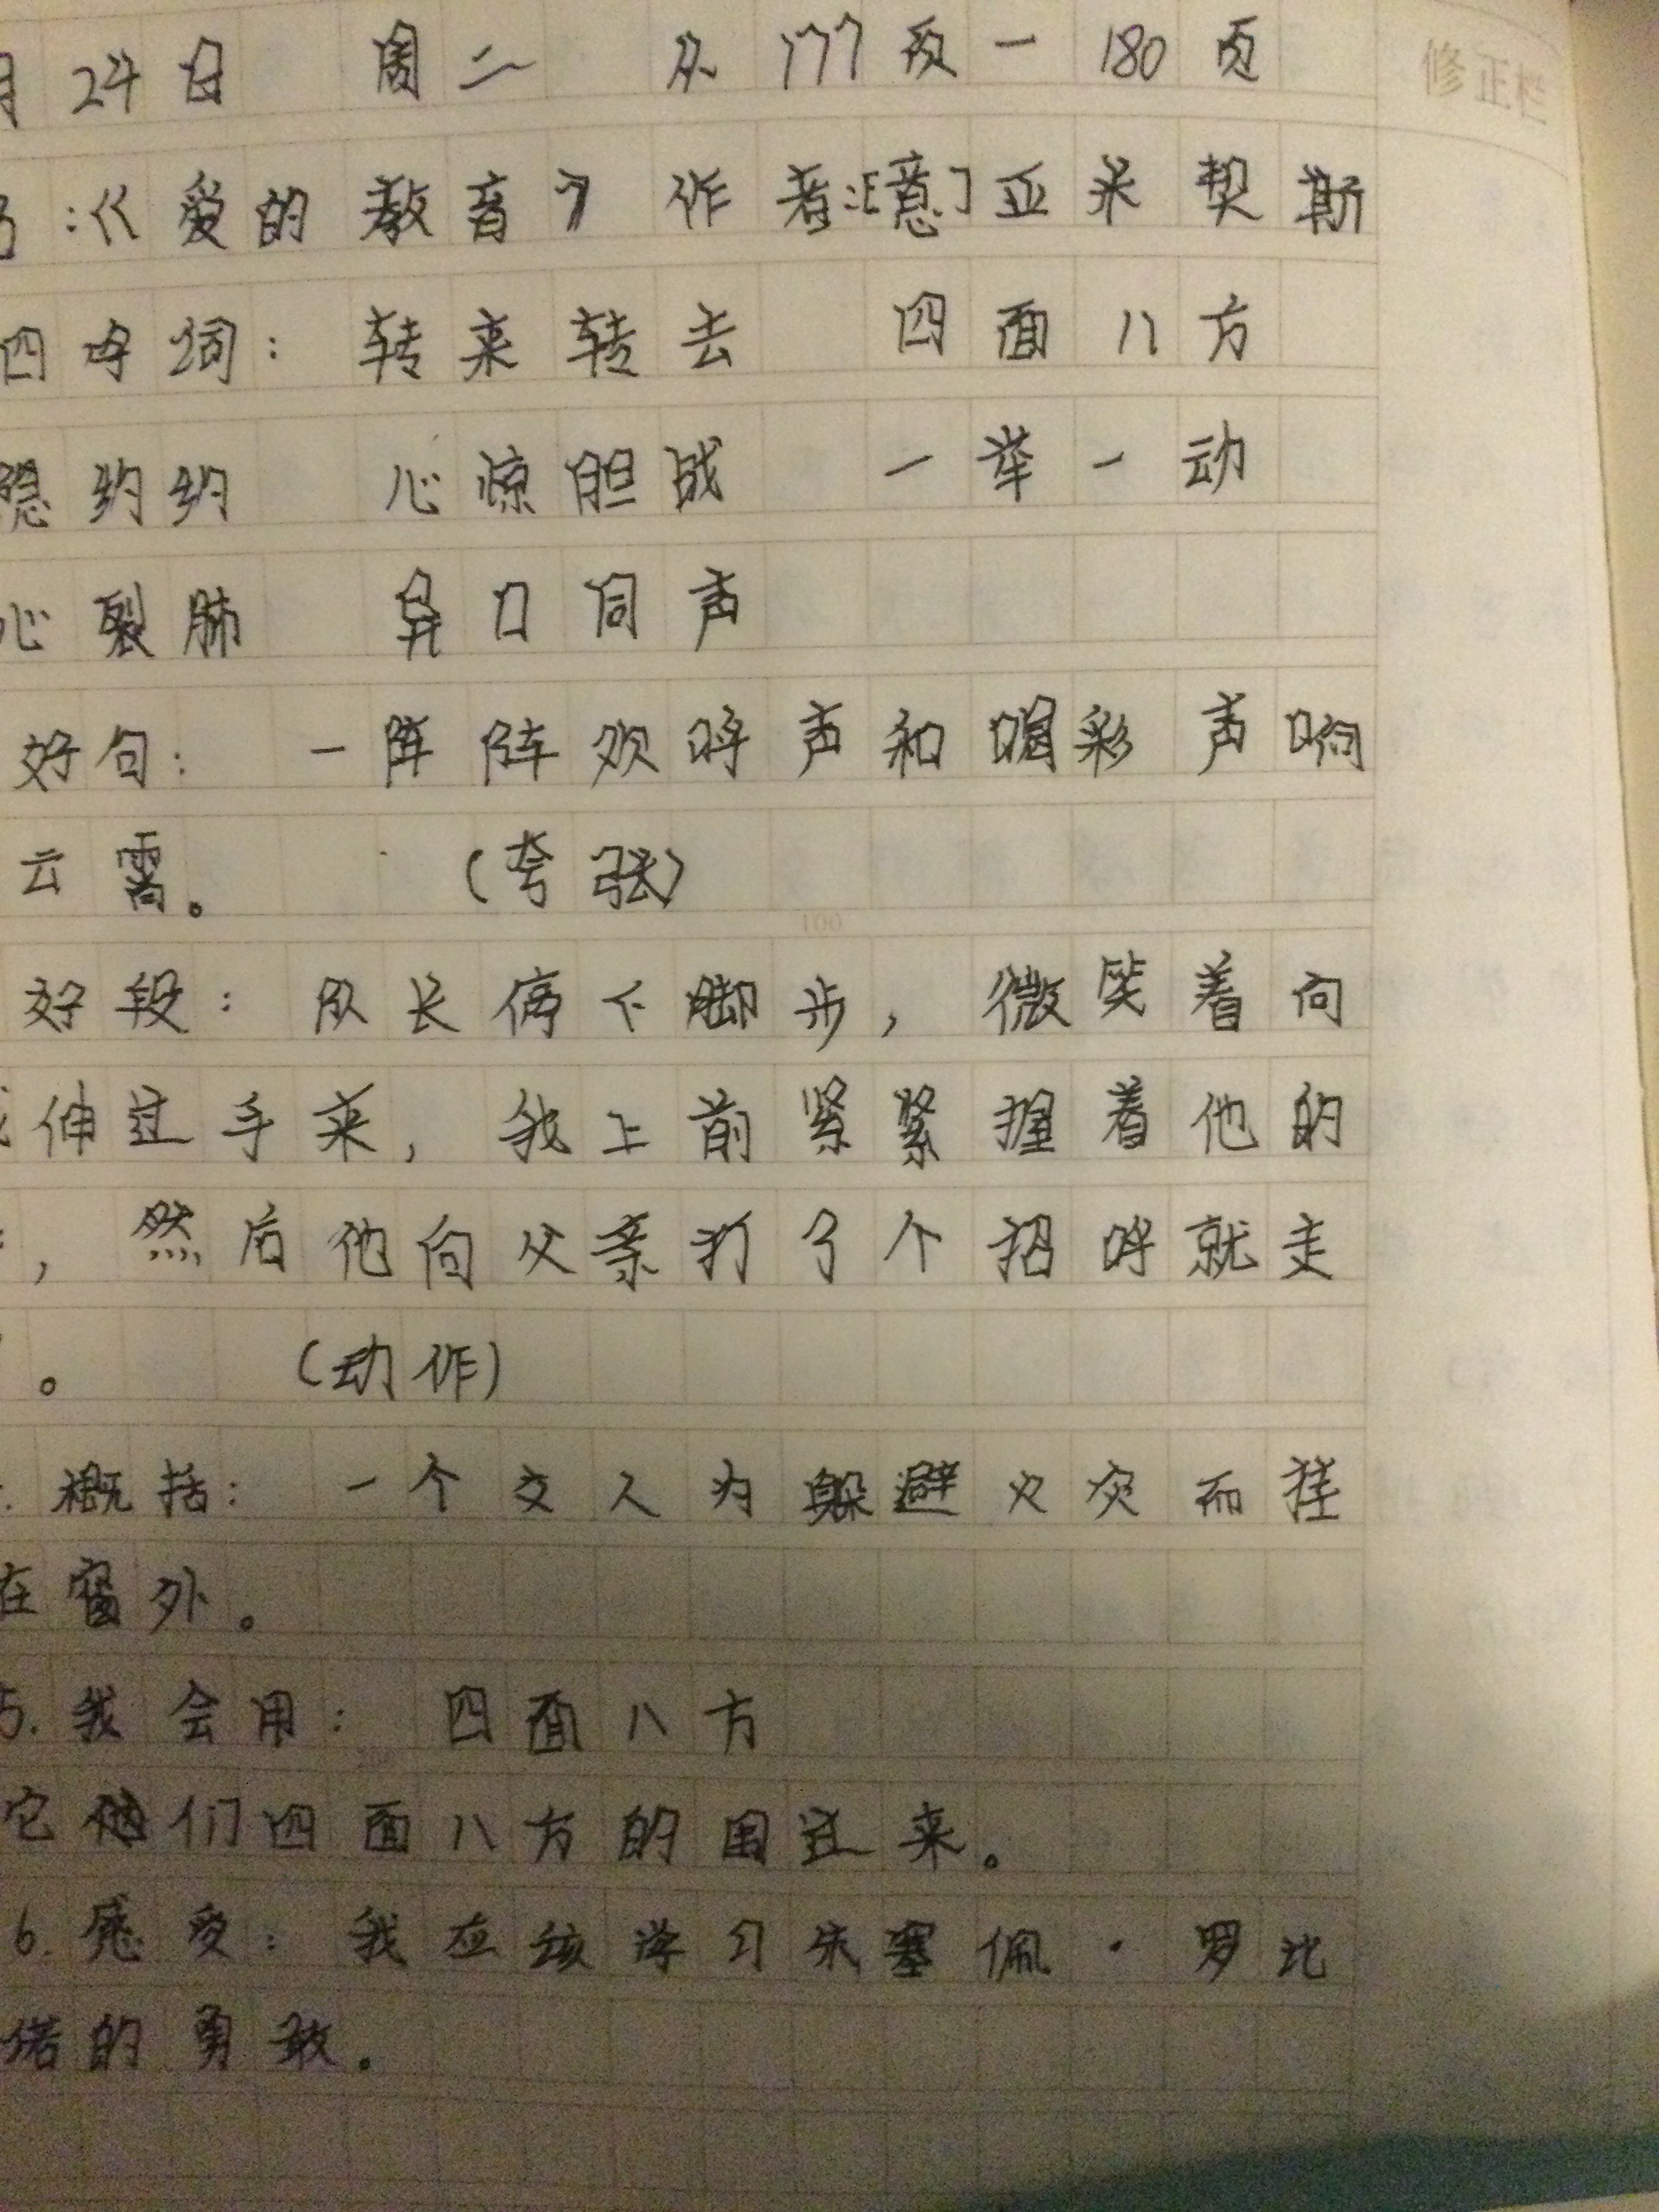 月24日 周二 从177页一180页
修正栏
:《爱的教育》作者:[意]亚米契斯
四字词: 转来转去 四面八方
隐约约 心惊胆战 一举一动
心裂肺 异口同声
好句: 一阵阵欢呼声和喝彩声响
云霄。 (夸张)
100
好段: 队长停下脚步,微笑着向
我伸过手来,我上前紧紧握着他的
,然后他向父亲打了个招呼就走
。 (动作)
概括: 一个女人为躲避火灾而挂
在窗外。
5.我会用: 四面八方
它们四面八方的围过来。
6.感受: 我应该学习朱塞佩·罗比
诺的勇敢。